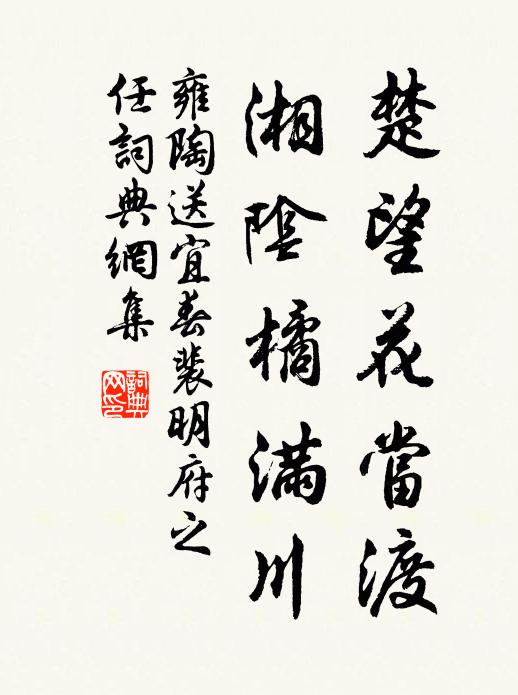 楚望花當渡
湘陰橘滿川
雍陶送宜春裴明府之
任詞典網集
詞典
网印